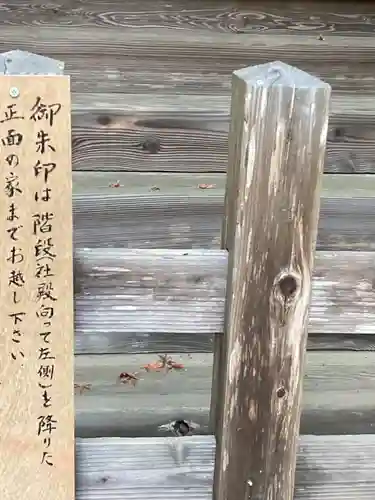 御朱印は階段(社殿向って左側)を降りた
正面の家までお越し下さい